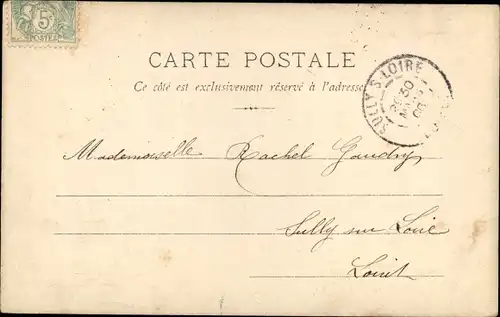 5c
POSTES
CARTE POSTALE
Ce côté est exclusivement réservé à l'adresse
SULLY S. LOIRE
30
Mademoiselle Rachel Gaudry
Sully sur Loire
Loiret